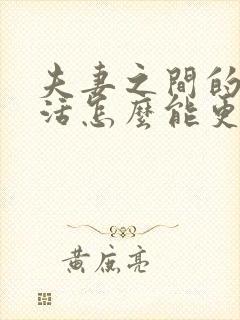 夫妻之間的
活怎麼能更
黃庶亮